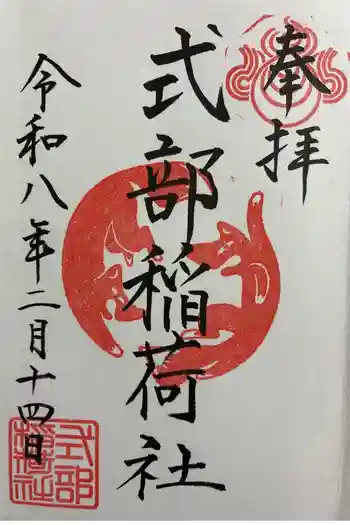 奉拝
式部稲荷社
令和八年二月十四日
式部
稲荷社